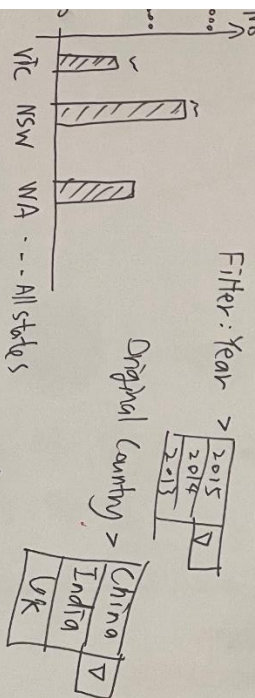 Filter: Year >
2015
2014
2013
Original Country >
China
India
UK
VIC NSW WA ... All states